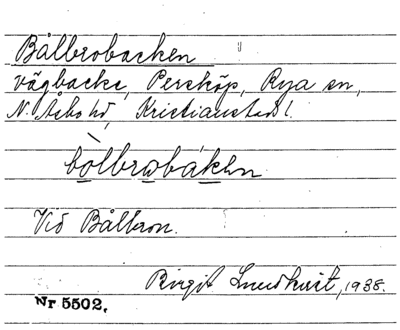 Bålbrobacken
vägbacke, Perstorp, Rya sn,
N. Åsbo hd, Kristianstads l.
bòlbrωbákən
Vid Bålbron.
Birgit Lundkvist, 1938.
Nr 5502.